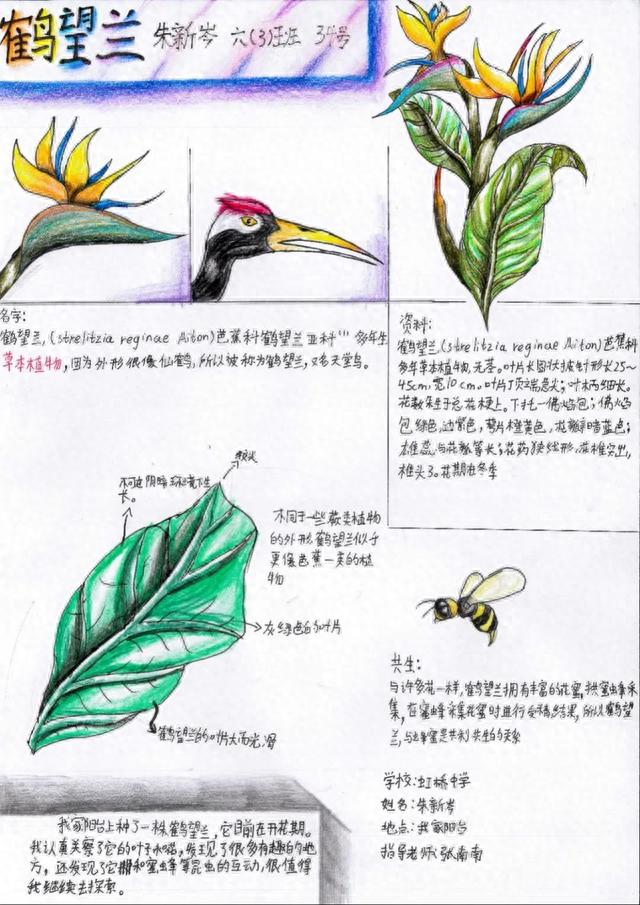 鹤望兰 朱新岑 六(3)班 34号
名字:
鹤望兰,(strelitzia reginae Aiton)芭蕉科鹤望兰亚科 多年生
草本植物,因为外形很像仙鹤,所以被称为鹤望兰,又名天堂鸟。
资料:
鹤望兰,(strelitzia reginae Aiton)芭蕉科
多年草本植物,无茎。叶片长圆状披针形长25~
45cm,宽10cm。叶片顶端急尖;叶柄细长。
花数朵生于总花梗上。下托一佛焰包;佛焰
包绿色,边紫色,萼片橙黄色,花瓣暗蓝色;
雄蕊与花瓣等长;花药狭线形,花柱突出,
柱头3。花期在冬季
尖头
不可进阴暗环境下生
长。
不同于一些蕨类植物
的外形,鹤望兰似乎
更像芭蕉一类的植
物
灰绿色的叶片
鹤望兰的叶片大而光滑
共生:
与许多花一样,鹤望兰拥有丰富的花蜜,供蜜蜂采
集,在蜜蜂采集花蜜时进行受精结果,所以鹤望
兰,与蜂蜜是共利共生的关系
学校:虹桥中学
姓名:朱新岑
地点:我家阳台
指导老师:张南南
我家阳台上种了一株鹤望兰,它目前在开花期。
我认真观察了它的叶子和花,发现了很多有趣的地
方,还发现了它和蜜蜂等昆虫的互动,很值得
我继续去探索。